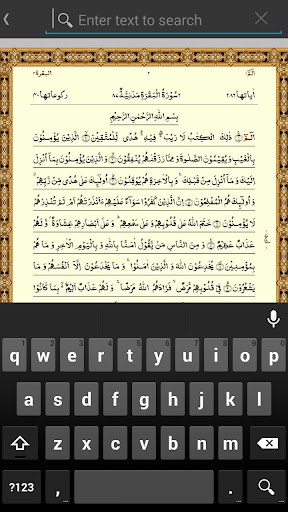 Enter text to search
البقرة ٢
٢
الٓمّٓ ١
اٰیاتها ٢٨٦
٢ سُوْرَةُ الْبَقَرَةِ مَدَنِيَّةٌ ٨٧
رکوعاتها ٤٠
بِسْمِ اللّٰهِ الرَّحْمٰنِ الرَّحِيْمِ
الٓمّٓ ۚ ذٰلِكَ الْكِتٰبُ لَا رَيْبَ ۛ فِيْهِ ۛ هُدًى لِّلْمُتَّقِيْنَ ۙ الَّذِيْنَ يُؤْمِنُوْنَ
بِالْغَيْبِ وَيُقِيْمُوْنَ الصَّلٰوةَ وَمِمَّا رَزَقْنٰهُمْ يُنْفِقُوْنَ ۙ وَالَّذِيْنَ يُؤْمِنُوْنَ بِمَآ اُنْزِلَ
اِلَيْكَ وَمَآ اُنْزِلَ مِنْ قَبْلِكَ ۚ وَبِالْاٰخِرَةِ هُمْ يُوْقِنُوْنَ ؕ اُولٰٓئِكَ عَلٰى هُدًى مِّنْ رَّبِّهِمْ ۗ
وَاُولٰٓئِكَ هُمُ الْمُفْلِحُوْنَ اِنَّ الَّذِيْنَ كَفَرُوْا سَوَآءٌ عَلَيْهِمْ ءَاَنْذَرْتَهُمْ اَمْ لَمْ تُنْذِرْهُمْ
لَا يُؤْمِنُوْنَ خَتَمَ اللّٰهُ عَلٰى قُلُوْبِهِمْ وَعَلٰى سَمْعِهِمْ ؕ وَعَلٰٓى اَبْصَارِهِمْ غِشَاوَةٌ ۫ وَّلَهُمْ
عَذَابٌ عَظِيْمٌ وَمِنَ النَّاسِ مَنْ يَّقُوْلُ اٰمَنَّا بِاللّٰهِ وَبِالْيَوْمِ الْاٰخِرِ وَمَا هُمْ
بِمُؤْمِنِيْنَ ۘ يُخٰدِعُوْنَ اللّٰهَ وَالَّذِيْنَ اٰمَنُوْا ۚ وَمَا يَخْدَعُوْنَ اِلَّآ اَنْفُسَهُمْ وَمَا
يَشْعُرُوْنَ ؕ فِيْ قُلُوْبِهِمْ مَّرَضٌ ۙ فَزَادَهُمُ اللّٰهُ مَرَضًا ۚ وَلَهُمْ عَذَابٌ اَلِيْمٌۢ ۙ بِمَا كَانُوْا
q w e r t y u i o p
a s d f g h j k l
z x c v b n m
?123 , .